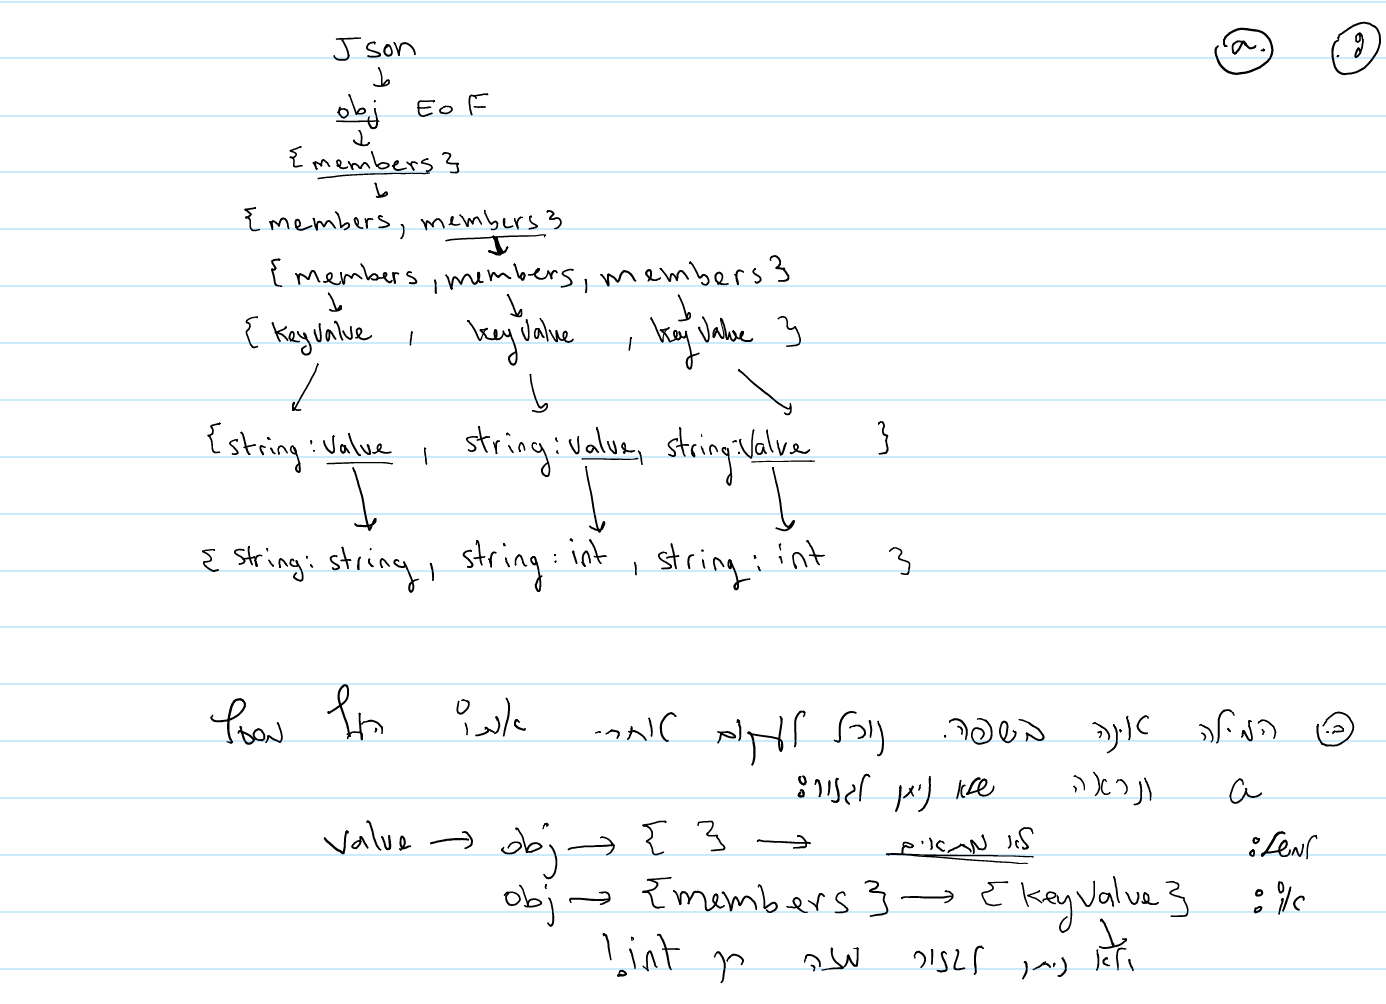 2. a.
Json
↓
obj EOF
↓
{members}
↓
{members, members}
↓
{members, members, members}
↓ ↓ ↓
{keyValue, keyValue, keyValue}
↓ ↓ ↓
{string:value, string:value, string:Value}
↓ ↓ ↓
{string:string, string:int, string:int}
b. המילה אינה בשפה. נוכל לעקוב אחרי אותו
a ונראה שלא ניתן לגזור:
למשל: value → obj → { } → לא מתאים
או: obj → {members} → {keyValue}
↓
ולא ניתן לגזור מזה רק int!